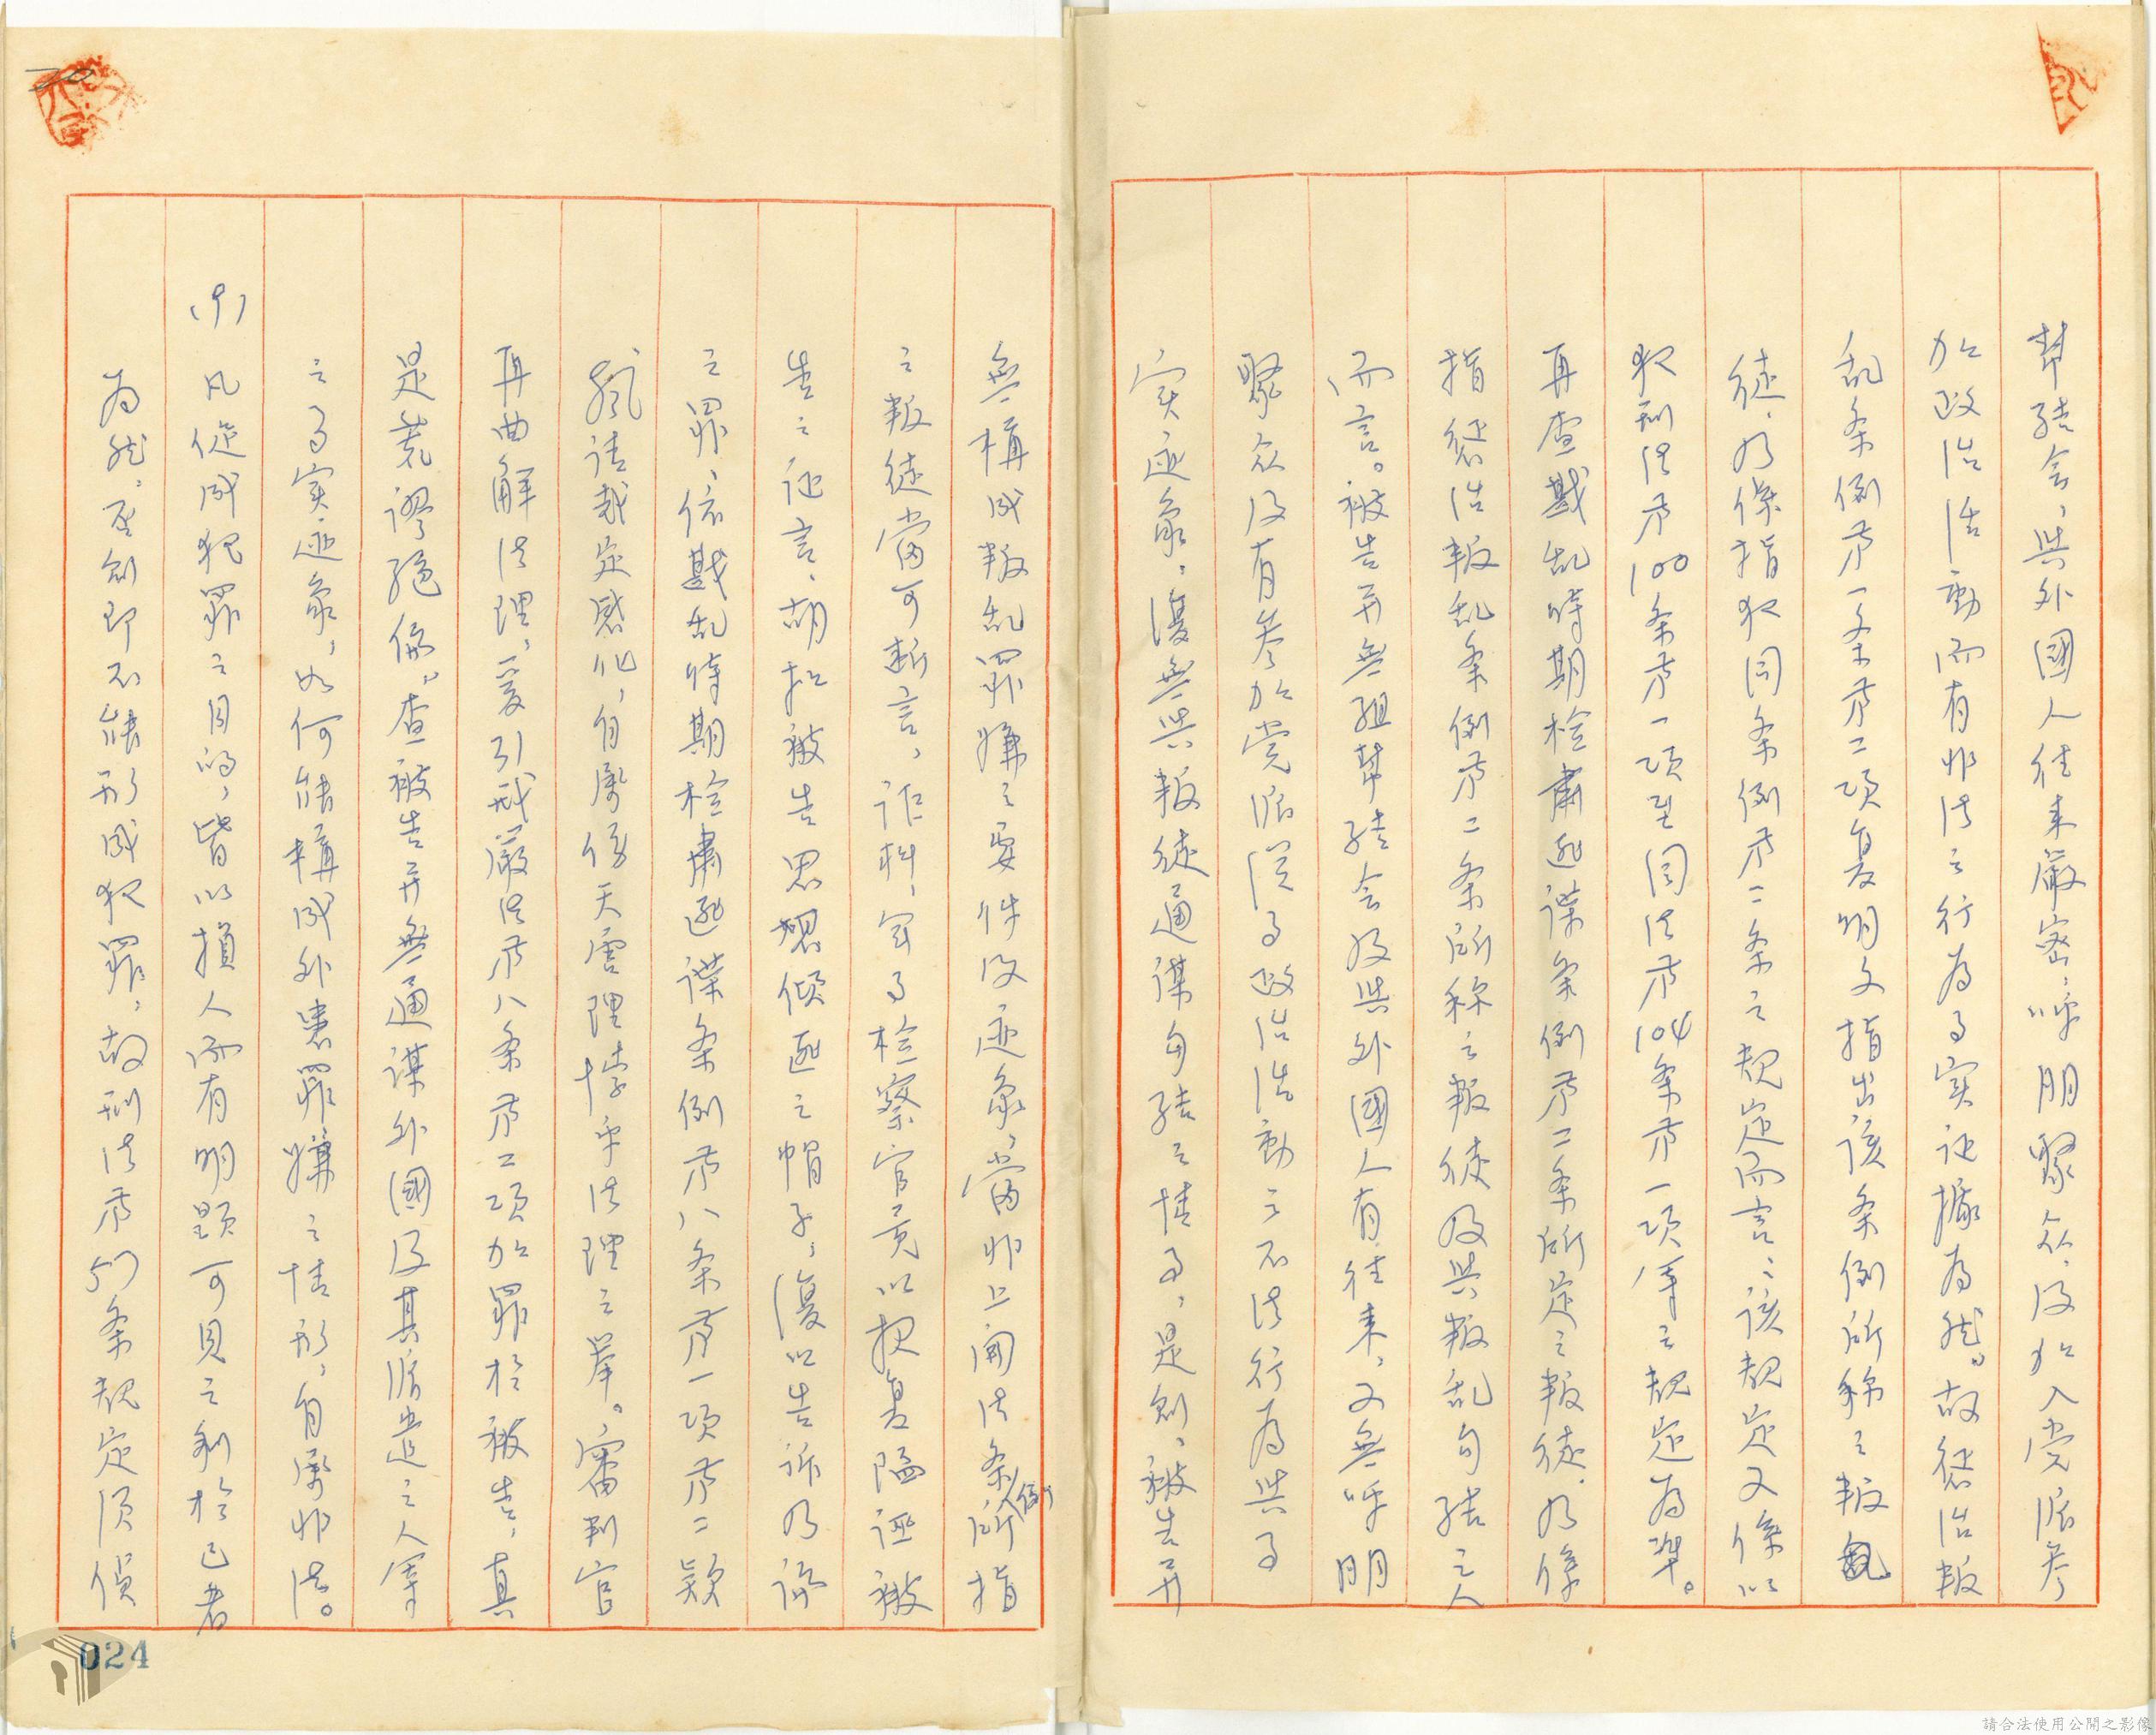 幇結会，與外國人往來嚴密，呼朋聚众，及加入党派参
加政治活動而有非法之行為事实証據為然。故惩治叛
乱条例第一条第二項复明文指出該条例所称之叛乱
徒，乃係指犯同条例第二条之規定而言，該規定又係以
犯刑法第100条第一項至同法第104条第一項等之規定為準。
再查戡乱時期檢肅匪諜条例第二条所定之叛徒，乃係
指惩治叛乱条例第二条所称之叛徒及與叛乱勾結之人
而言。被告并無組幇結会及與外國人有往來，又無呼朋
聚众及有参加党派從事政治活動之不法行為與事
实迹象，復無與叛徒通謀勾結之情事，是則，被告并
無構成叛乱罪嫌之要件及迹象，當非上開法条例所指
之叛徒當可断言，詎料，軍事檢察官竟以挾
告之証言，胡扣被告思想傾匪之帽子，復以告訴乃論
之罪，依戡乱時期檢肅匪諜条例第八条第一項第二款
請裁定感化，自屬傷天害理悖乎法理之舉。審判官
再曲解法理，爰引戒嚴法第八条第二項加罪於被告，真
是荒謬絕倫。查被告并無通謀外國及其派遣之人等
之事实迹象，如何能構成外患罪嫌之情形，自屬非法。
(9) 凡從成犯罪之目的，皆以損人而有明顕可見之利於己者
為然，否則即不能形成犯罪，故刑法第57条規定須偵
024
請合法使用公開之影像